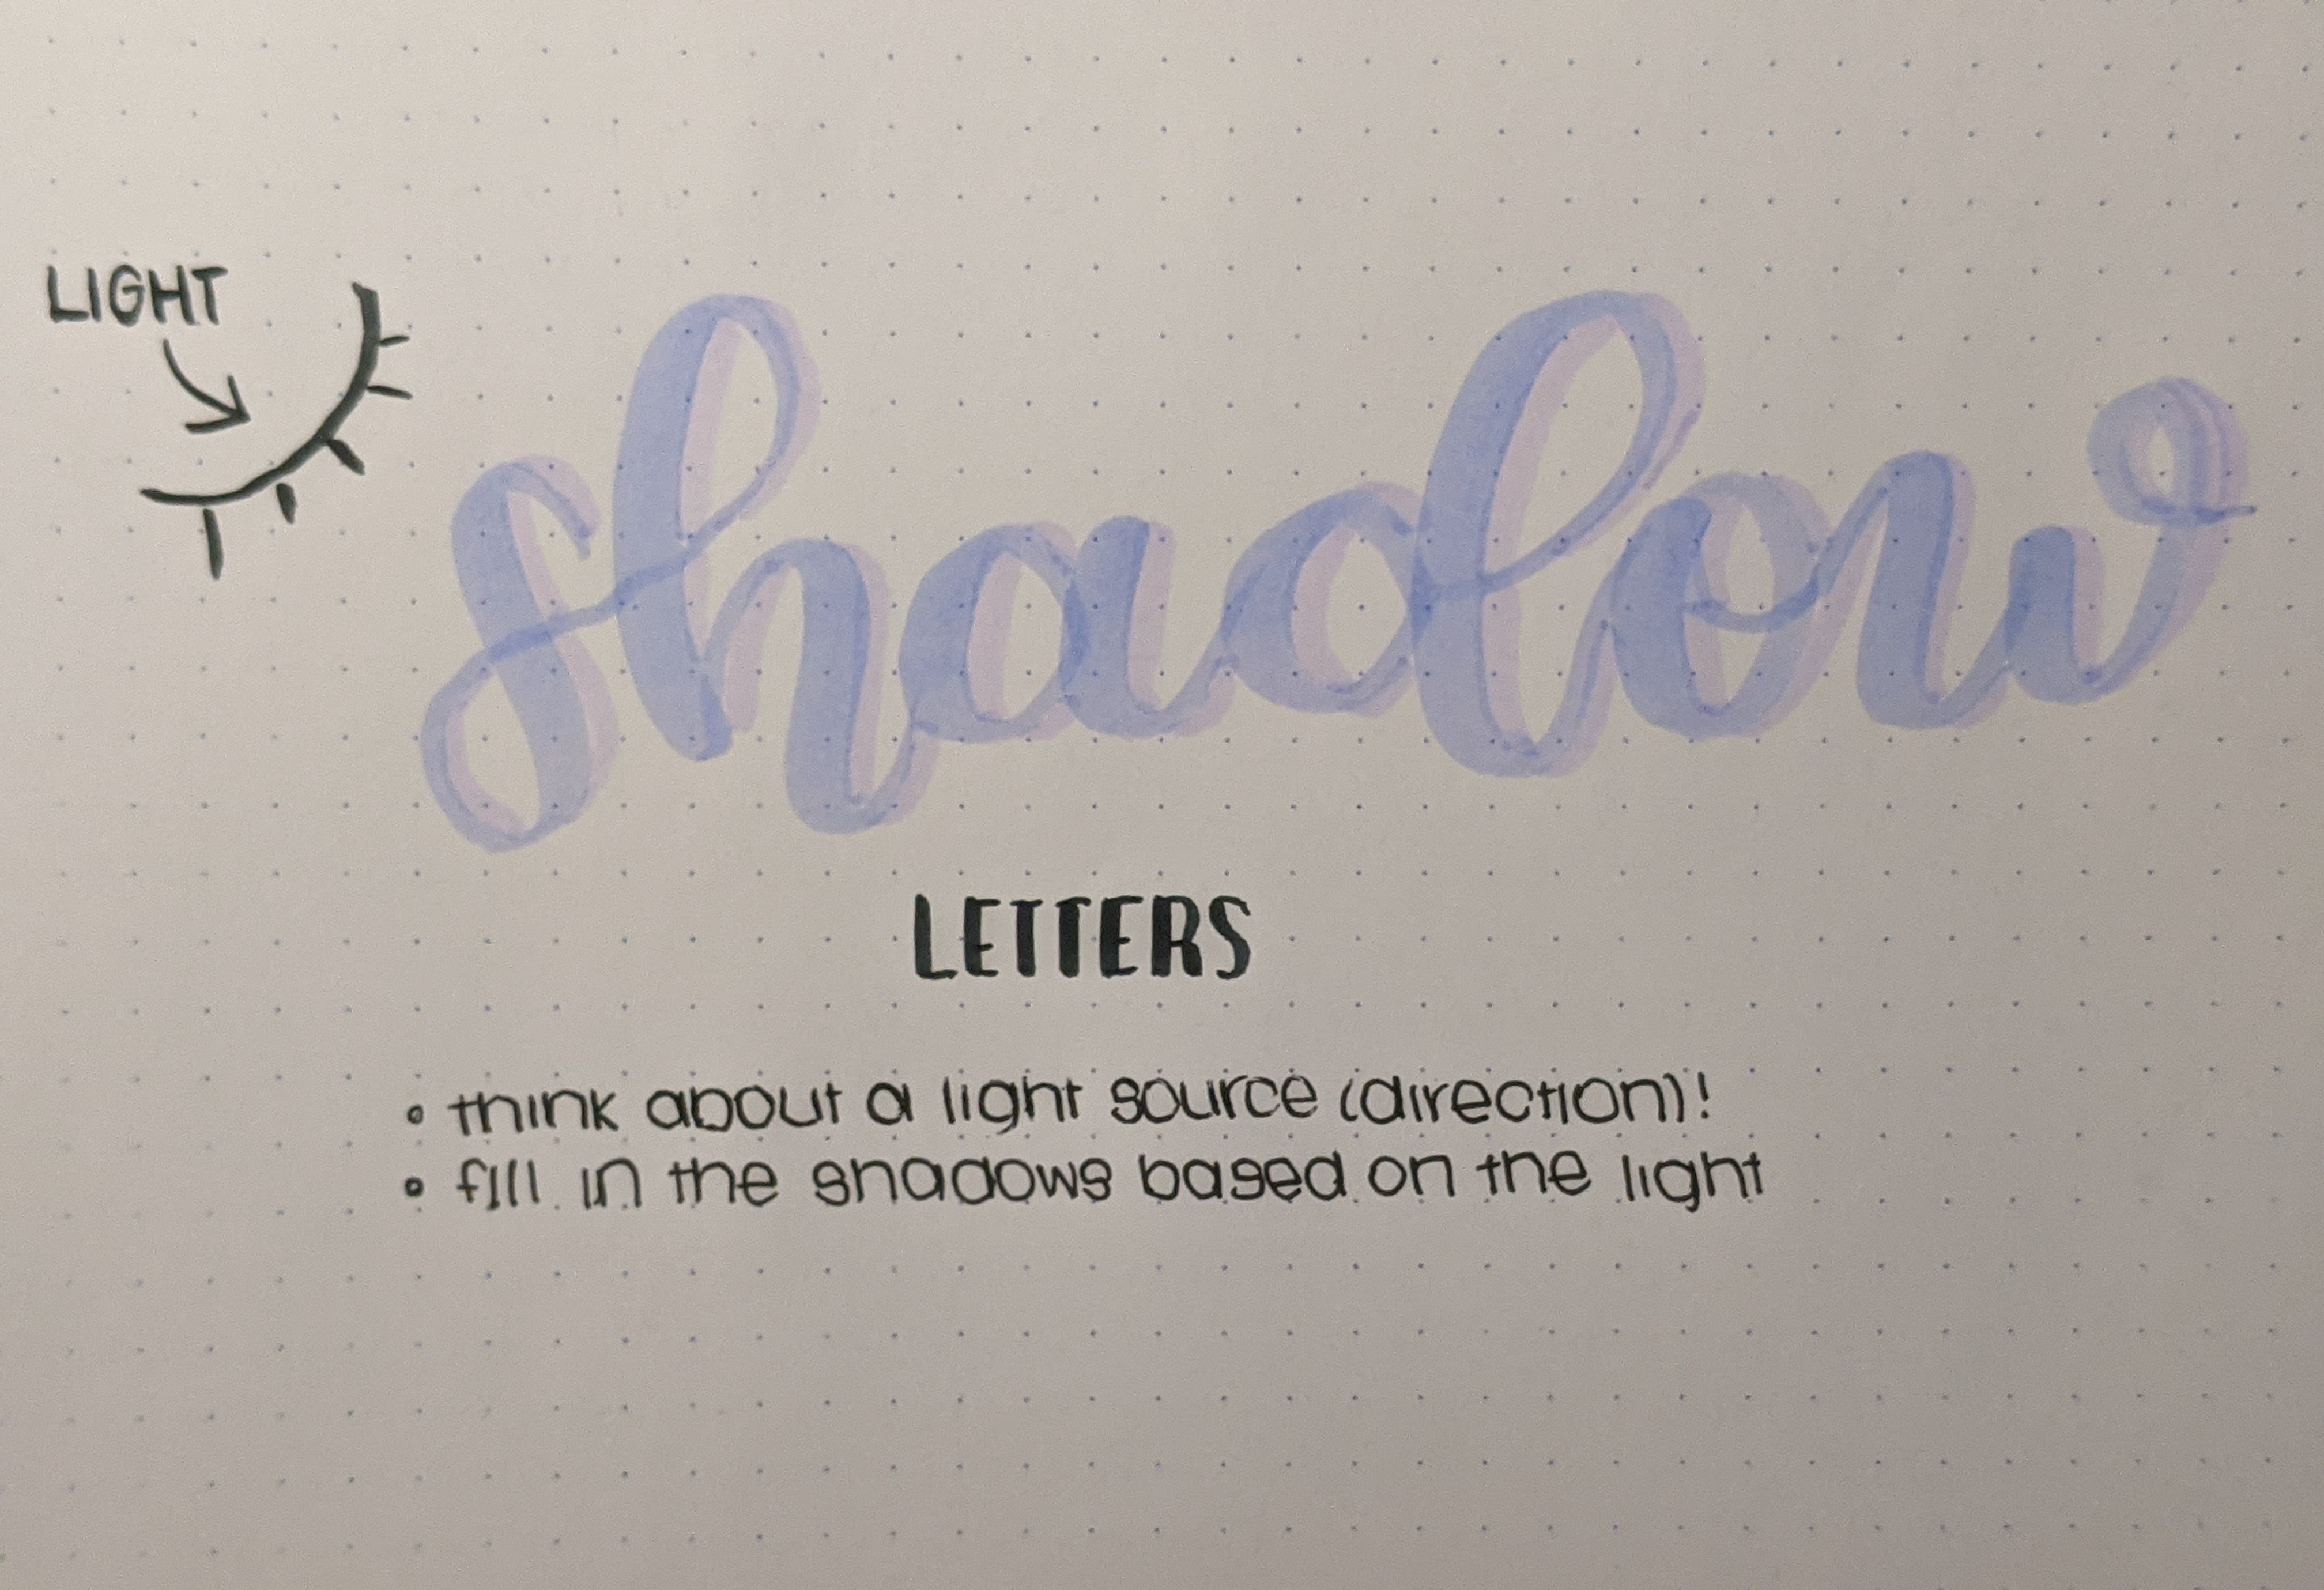 LIGHT
shadow
LETTERS
• think about a light source (direction)!
• fill in the shadows based on the light